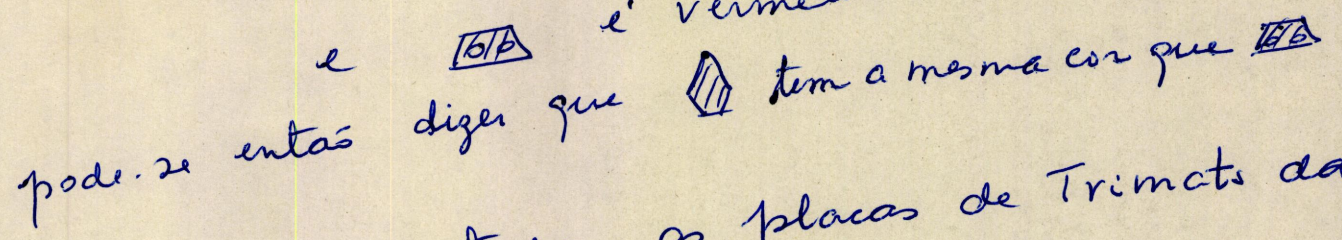 e bb é
pode-se então dizer que tem a mesma cor que bb
as placas de Trimats da